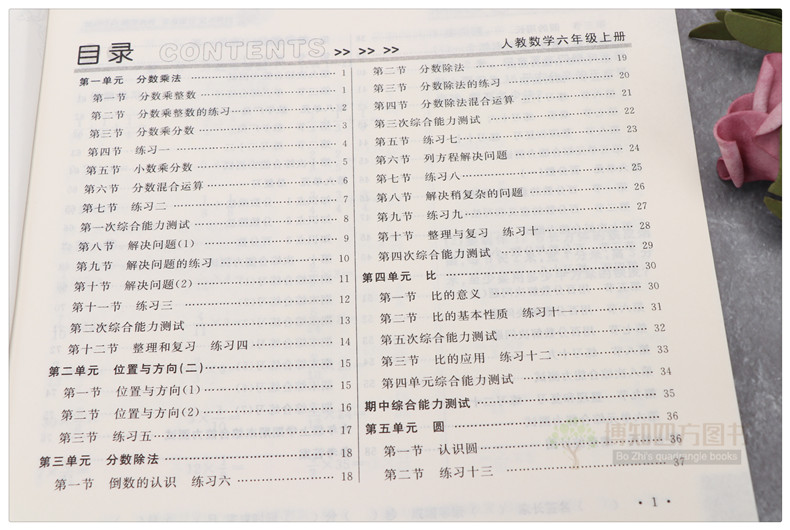 目录 CONTENTS >> >> >>
人教数学六年级上册
第一单元 分数乘法 1
第一节 分数乘整数 1
第二节 分数乘整数的练习 2
第三节 分数乘分数 3
第四节 练习一 4
第五节 小数乘分数 5
第六节 分数混合运算 6
第七节 练习二 7
第一次综合能力测试 8
第八节 解决问题(1) 9
第九节 解决问题的练习 10
第十节 解决问题(2) 11
第十一节 练习三 12
第二次综合能力测试 13
第十二节 整理和复习 练习四 14
第二单元 位置与方向(二) 15
第一节 位置与方向(1) 15
第二节 位置与方向(2) 16
第三节 练习五 17
第三单元 分数除法 18
第一节 倒数的认识 练习六 18
第二节 分数除法 19
第三节 分数除法的练习 20
第四节 分数除法混合运算 21
第三次综合能力测试 22
第五节 练习七 23
第六节 列方程解决问题 24
第七节 练习八 25
第八节 解决稍复杂的问题 26
第九节 练习九 27
第十节 整理与复习 练习十 28
第四次综合能力测试 29
第四单元 比 30
第一节 比的意义 30
第二节 比的基本性质 练习十一 31
第五次综合能力测试 32
第三节 比的应用 练习十二 33
第四单元综合能力测试 34
期中综合能力测试 35
第五单元 圆 36
第一节 认识圆 36
第二节 练习十三 37
博知四方图书
Bo Zhi's quadrangle books
· 1 ·